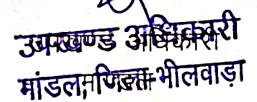 उपखण्ड अधिकारी
मांडल, जिला-भीलवाड़ा